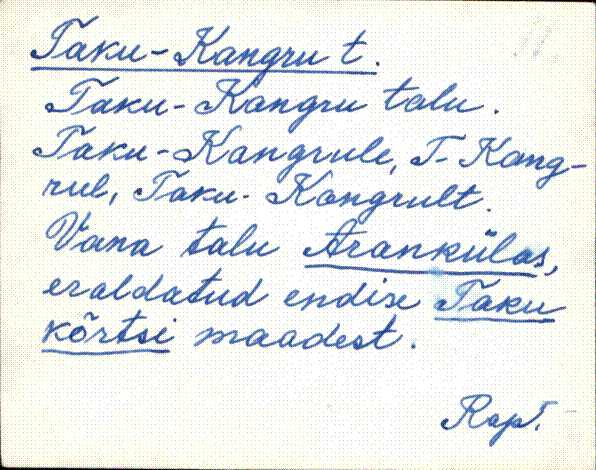 Taku-Kangru t.
Taku-Kangru talu.
Taku-Kangrule, T-Kang-
rul, Taku-Kangrult.
Vana talu Arankülas,
eraldatud endise Taku
kõrtsi maadest.
Rap.